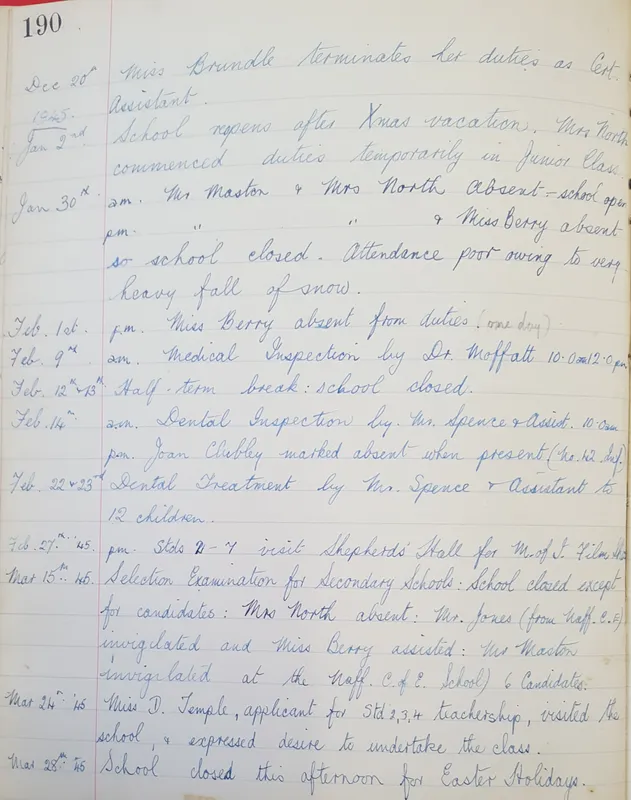 190
Dec 20th Miss Brundle terminates her duties as Cert.
Assistant.
1945.
Jan 2nd School reopens after Xmas vacation. Mrs North
commenced duties temporarily in Junior Class.
Jan 30th a.m. Mr Maston & Mrs North absent - school open
p.m. " " & Miss Berry absent
so school closed. Attendance poor owing to very
heavy fall of snow.
Feb. 1st. p.m. Miss Berry absent from duties (one day)
Feb. 9th a.m. Medical Inspection by Dr. Moffatt 10.0am 12.0pm
Feb. 12th & 13th Half-term break: school closed.
Feb. 14th a.m. Dental Inspection by Mr. Spence & Assist. 10.0am
p.m. Joan Clubley marked absent when present (No. 42. Inf.)
Feb. 22 & 23rd Dental Treatment by Mr. Spence & Assistant to
12 children.
Feb. 27th '45 p.m. Stds 2-7 visit Shepherds' Hall for M. of I. Film
Mar 15th 45 Selection Examination for Secondary Schools: School closed except
for candidates: Mrs North absent: Mr. Jones (from Naff. C.E)
invigilated and Miss Berry assisted: Mr Maston
invigilated at the Naff. C. of E. School) 6 Candidates.
Mar 24th '45 Miss D. Temple, applicant for Std 2,3,4 teachership, visited the
school, & expressed desire to undertake the class.
Mar 28th '45 School closed this afternoon for Easter Holidays.